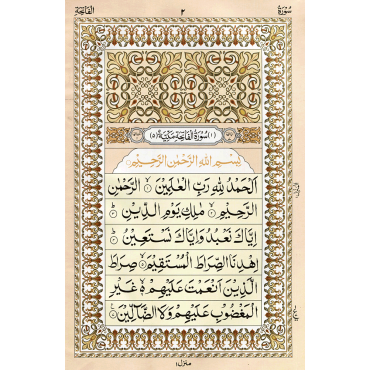 الفَاتِحَة ٢ سُورَةُ
(١) سُورَةُ الْفَاتِحَةِ مَكِّيَّةٌ (٥)
بِسْمِ اللّٰهِ الرَّحْمٰنِ الرَّحِيْمِ
اَلْحَمْدُ لِلّٰهِ رَبِّ الْعٰلَمِيْنَ ۙ الرَّحْمٰنِ
الرَّحِيْمِ ۙ مٰلِكِ يَوْمِ الدِّيْنِ ؕ
اِيَّاكَ نَعْبُدُ وَاِيَّاكَ نَسْتَعِيْنُ ؕ
اِهْدِنَا الصِّرَاطَ الْمُسْتَقِيْمَ ۙ صِرَاطَ
الَّذِيْنَ اَنْعَمْتَ عَلَيْهِمْ ۙ غَيْرِ
الْمَغْضُوْبِ عَلَيْهِمْ وَلَا الضَّآلِّيْنَ
منزل ١